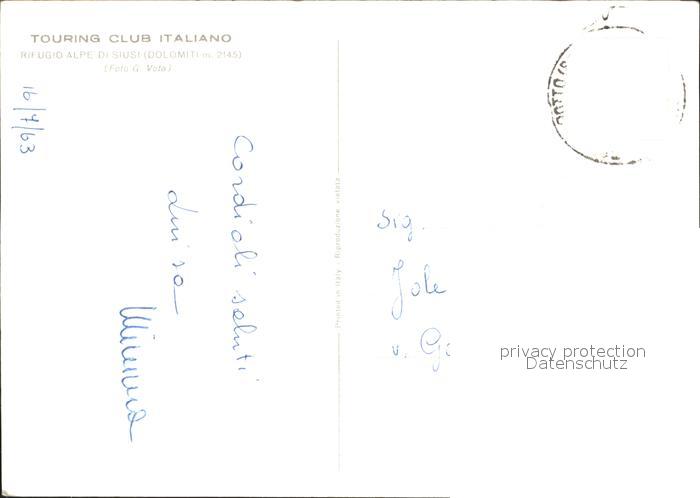 TOURING CLUB ITALIANO
RIFUGIO ALPE DI SIUSI (DOLOMITI m. 2145)
(Foto G. Vota)
16/7/63
Cordiali saluti
Luisa
Printed in Italy - Riproduzione vietata
Sig.
Jole
v. G
privacy protection
Datenschutz